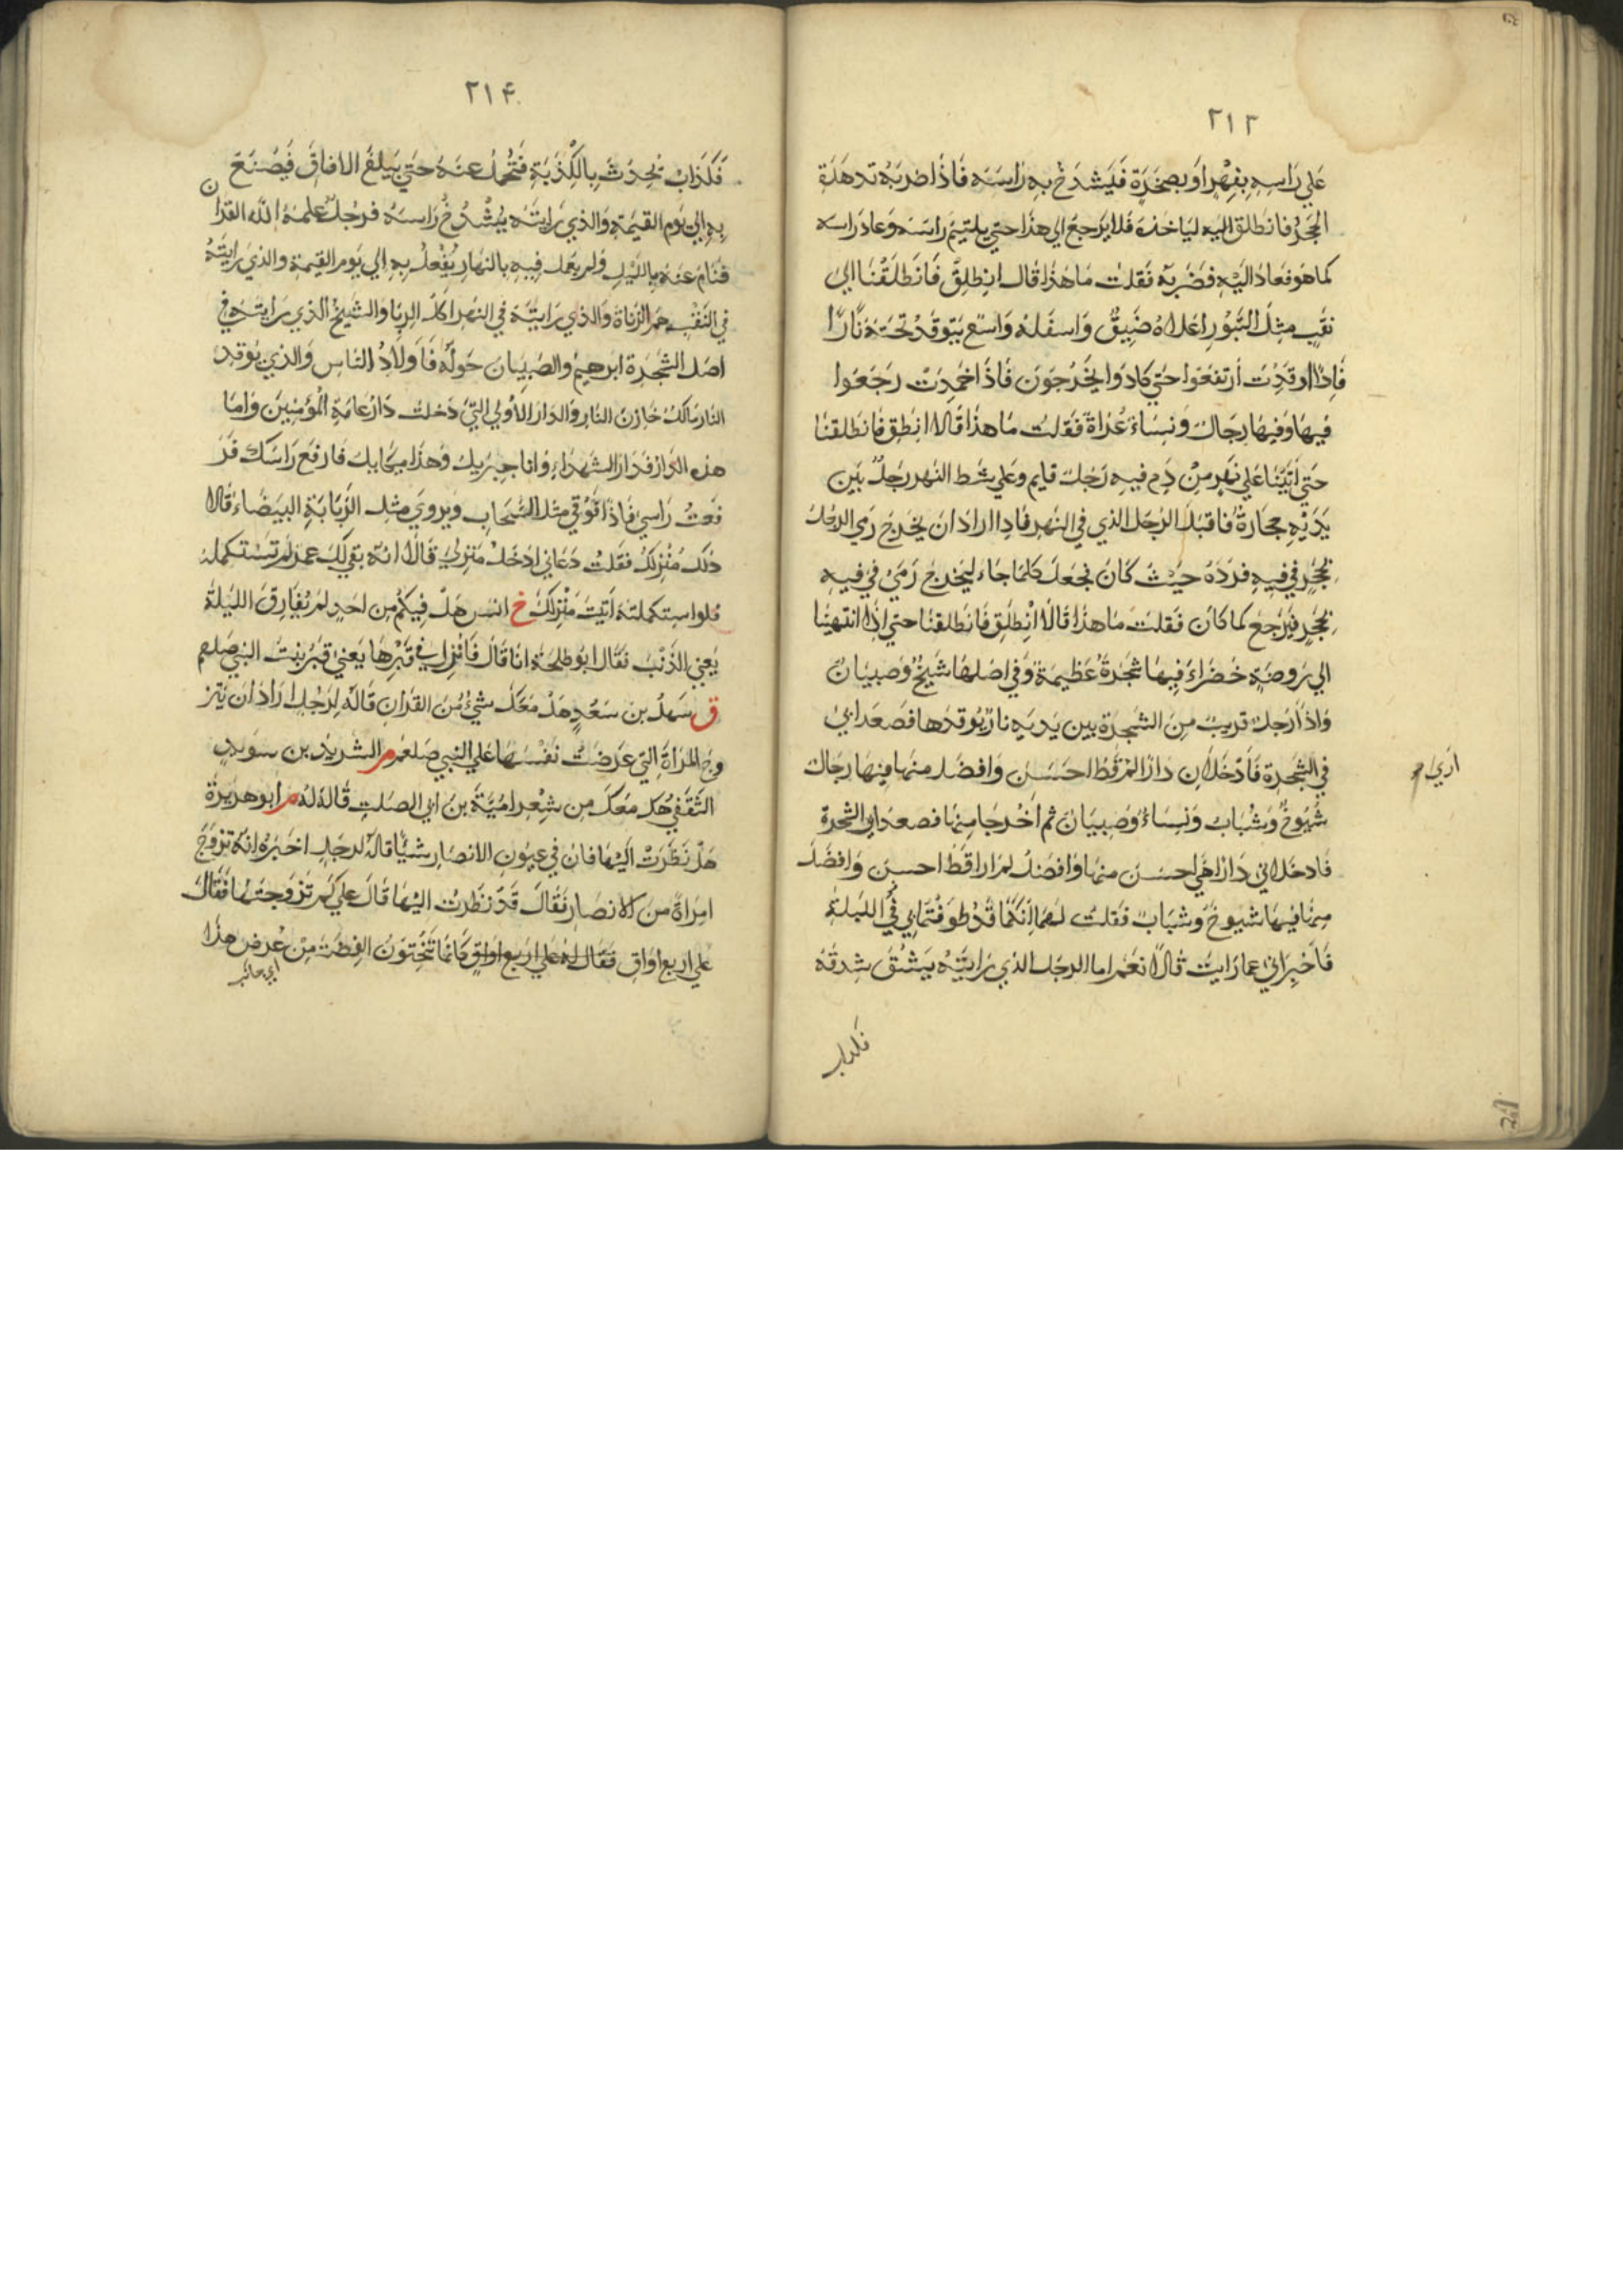 ٢١٣
علي راسه بفهر او بصخرة فيشدخ به راسه فاذا ضربه تدهده
الحجر فانطلق اليه لياخذه فلا يرجع الي هذا حتي يلتيم راسه وعاد راسه
كما هو فعاد اليه فضربه فقلت ما هذا قال انطلق فانطلقنا الي
نقب مثل التنور اعلاه ضيق واسفله واسع يتوقد تحته نارا
فاذا اوقدت ارتفعوا حتي كادوا يخرجون فاذا خمدت رجعوا
فيها وفيها رجال ونساء عراة فقلت ما هذا قالا انطق فانطلقنا
حتي اتينا علي نهر من دم فيه رجل قايم وعلي شط النهر رجل بين
يديه حجارة فاقبل الرجل الذي في النهر فاذا اراد ان يخرج رمي الرجل
بحجر في فيه فرده حيث كان فجعل كلما جاء ليخرج رمي في فيه
بحجر فيرجع كما كان فقلت ما هذا قالا انطلق فانطلقنا حتي اذا انتهينا
الي روضة خضراء فيها شجرة عظيمة وفي اصلها شيخ وصبيان
واذا رجل قريب من الشجرة بين يديه نار يوقدها فصعدا بي
في الشجرة فادخلان دارا لم قط احسن وافضل منها فيها رجال
اري
شيوخ وشباب ونساء وصبيان ثم اخرجا منها فصعدا بي الشجرة
فادخلاني دارا هي احسن منها وافضل لم ارا قط احسن وافضل
منها فيها شيوخ وشباب فقلت لهما انكما قد طوفتماني في الليلة
فاخبراني عما رايت قالا نعم اما الرجل الذي رايته يشق شدقه
فكذاب
٢١۴
فكذاب يحدث بالكذبة فتحمل عنه حتي يبلغ الافاق فيصنع
به الي يوم القيمة والذي رايته يشدخ راسه فرجل علمه الله القران
فنام عنه بالليل ولم يعمل فيه بالنهار يفعل به الي يوم القيمة والذي رايته
في النقب هم الزناة والذي رايته في النهر اكل الربا والشيخ الذي رايته في
اصل الشجرة ابرهيم والصبيان حوله فاولاد الناس والذي يوقد
النار مالك خازن النار والدار الاولي التي دخلت دار عامة المؤمنين واما
هذه الدار فدار الشهداء وانا جبريل وهذا ميكايل فارفع راسك فر
فعت راسي فاذا فوقي مثل السحاب ويروي مثل الربابة البيضاء قالا
ذلك منزلك فقلت دعاني ادخل منزلي قالا انه بقي لك عمر لم تستكمله
فلو استكملته اتيت منزلك خ انس هل فيكم من احد لم يقارف الليلة
يعني الذنب فقال ابو طلحة انا قال فانزل في قبرها يعني قبر بنت النبي صلعم
ق سهل بن سعد هل معك شيء من القران قاله لرجل اراد ان يتز
وج المراة التي عرضت نفسها علي النبي صلعم م الشريد بن سويد
الثقفي هل معك من شعر امية بن ابي الصلت قاله له م ابو هريرة
هل نظرت اليها فان في عيون الانصار شيا قاله لرجل اخبره انه تزوج
امراة من الانصار فقال قد نظرت اليها قال علي كم تزوجتها فقال
علي اربع اواق فقال له علي اربع اواق كانما تنحتون الفضة من عرض هذا
اي جانب